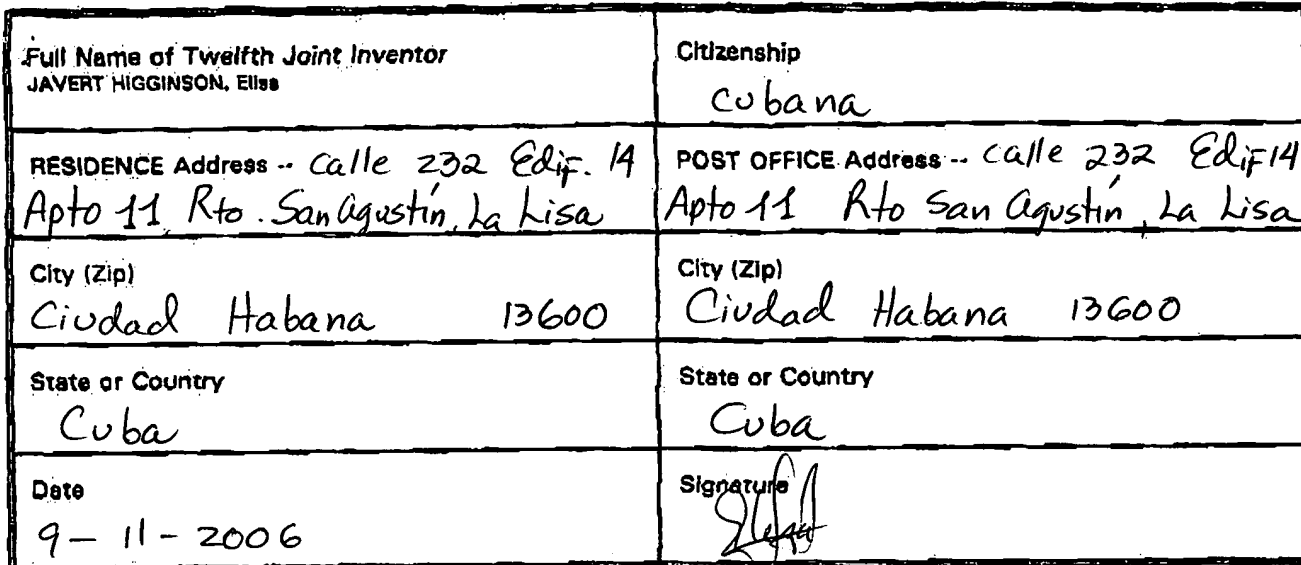 Full Name of Twelfth Joint Inventor
JAVERT HIGGINSON, Elisa
Citizenship
cubana
RESIDENCE Address -- Calle 232 Edif. 14
Apto 11 Rto. San Agustín, La Lisa
POST OFFICE Address -- Calle 232 Edif 14
Apto 11 Rto San Agustín, La Lisa
City (Zip)
Ciudad Habana 13600
City (Zip)
Ciudad Habana 13600
State or Country
Cuba
State or Country
Cuba
Date
9 - 11 - 2006
Signature